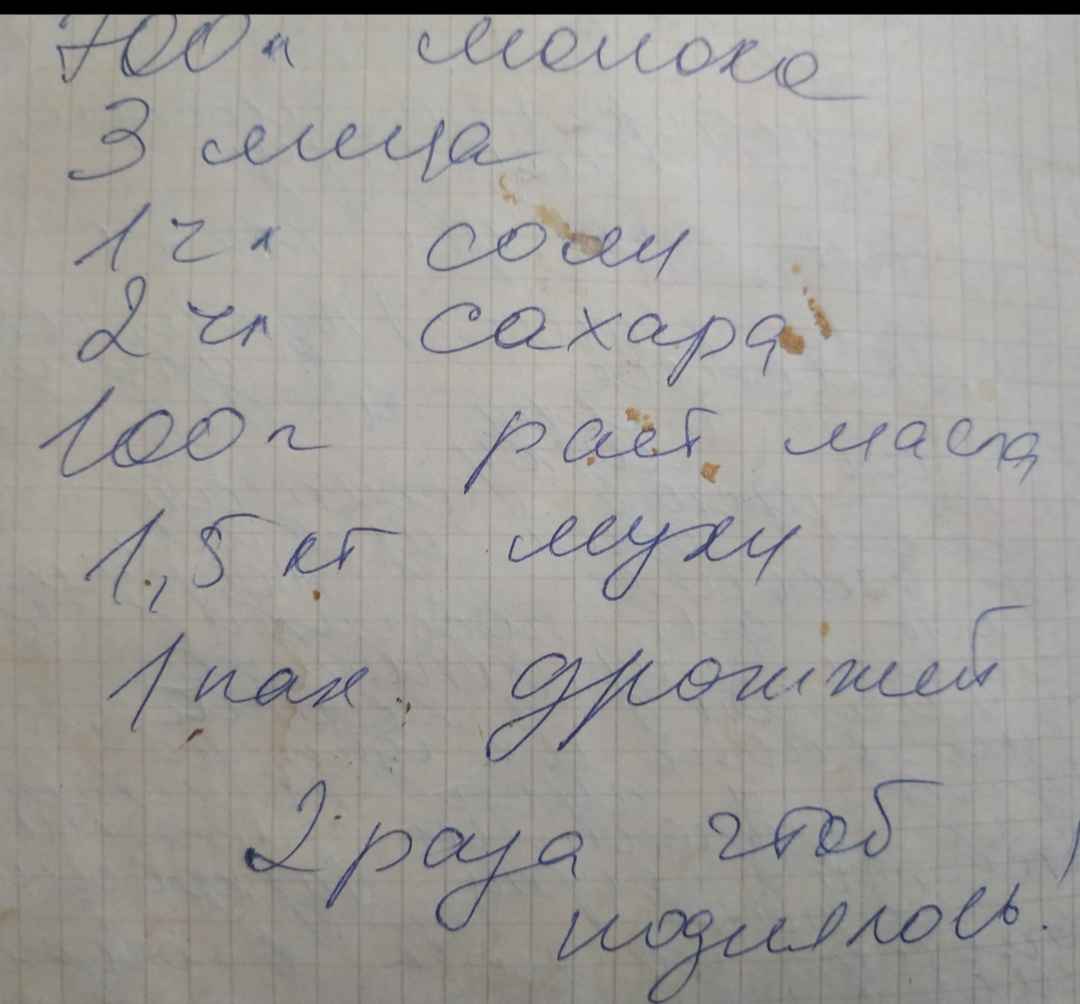 700 г молока
3 яйца
1 чл соли
2 чл сахара
100 г раст масла
1,5 кг муки
1 пак. дрожжей
2 раза чтоб
поднялось.